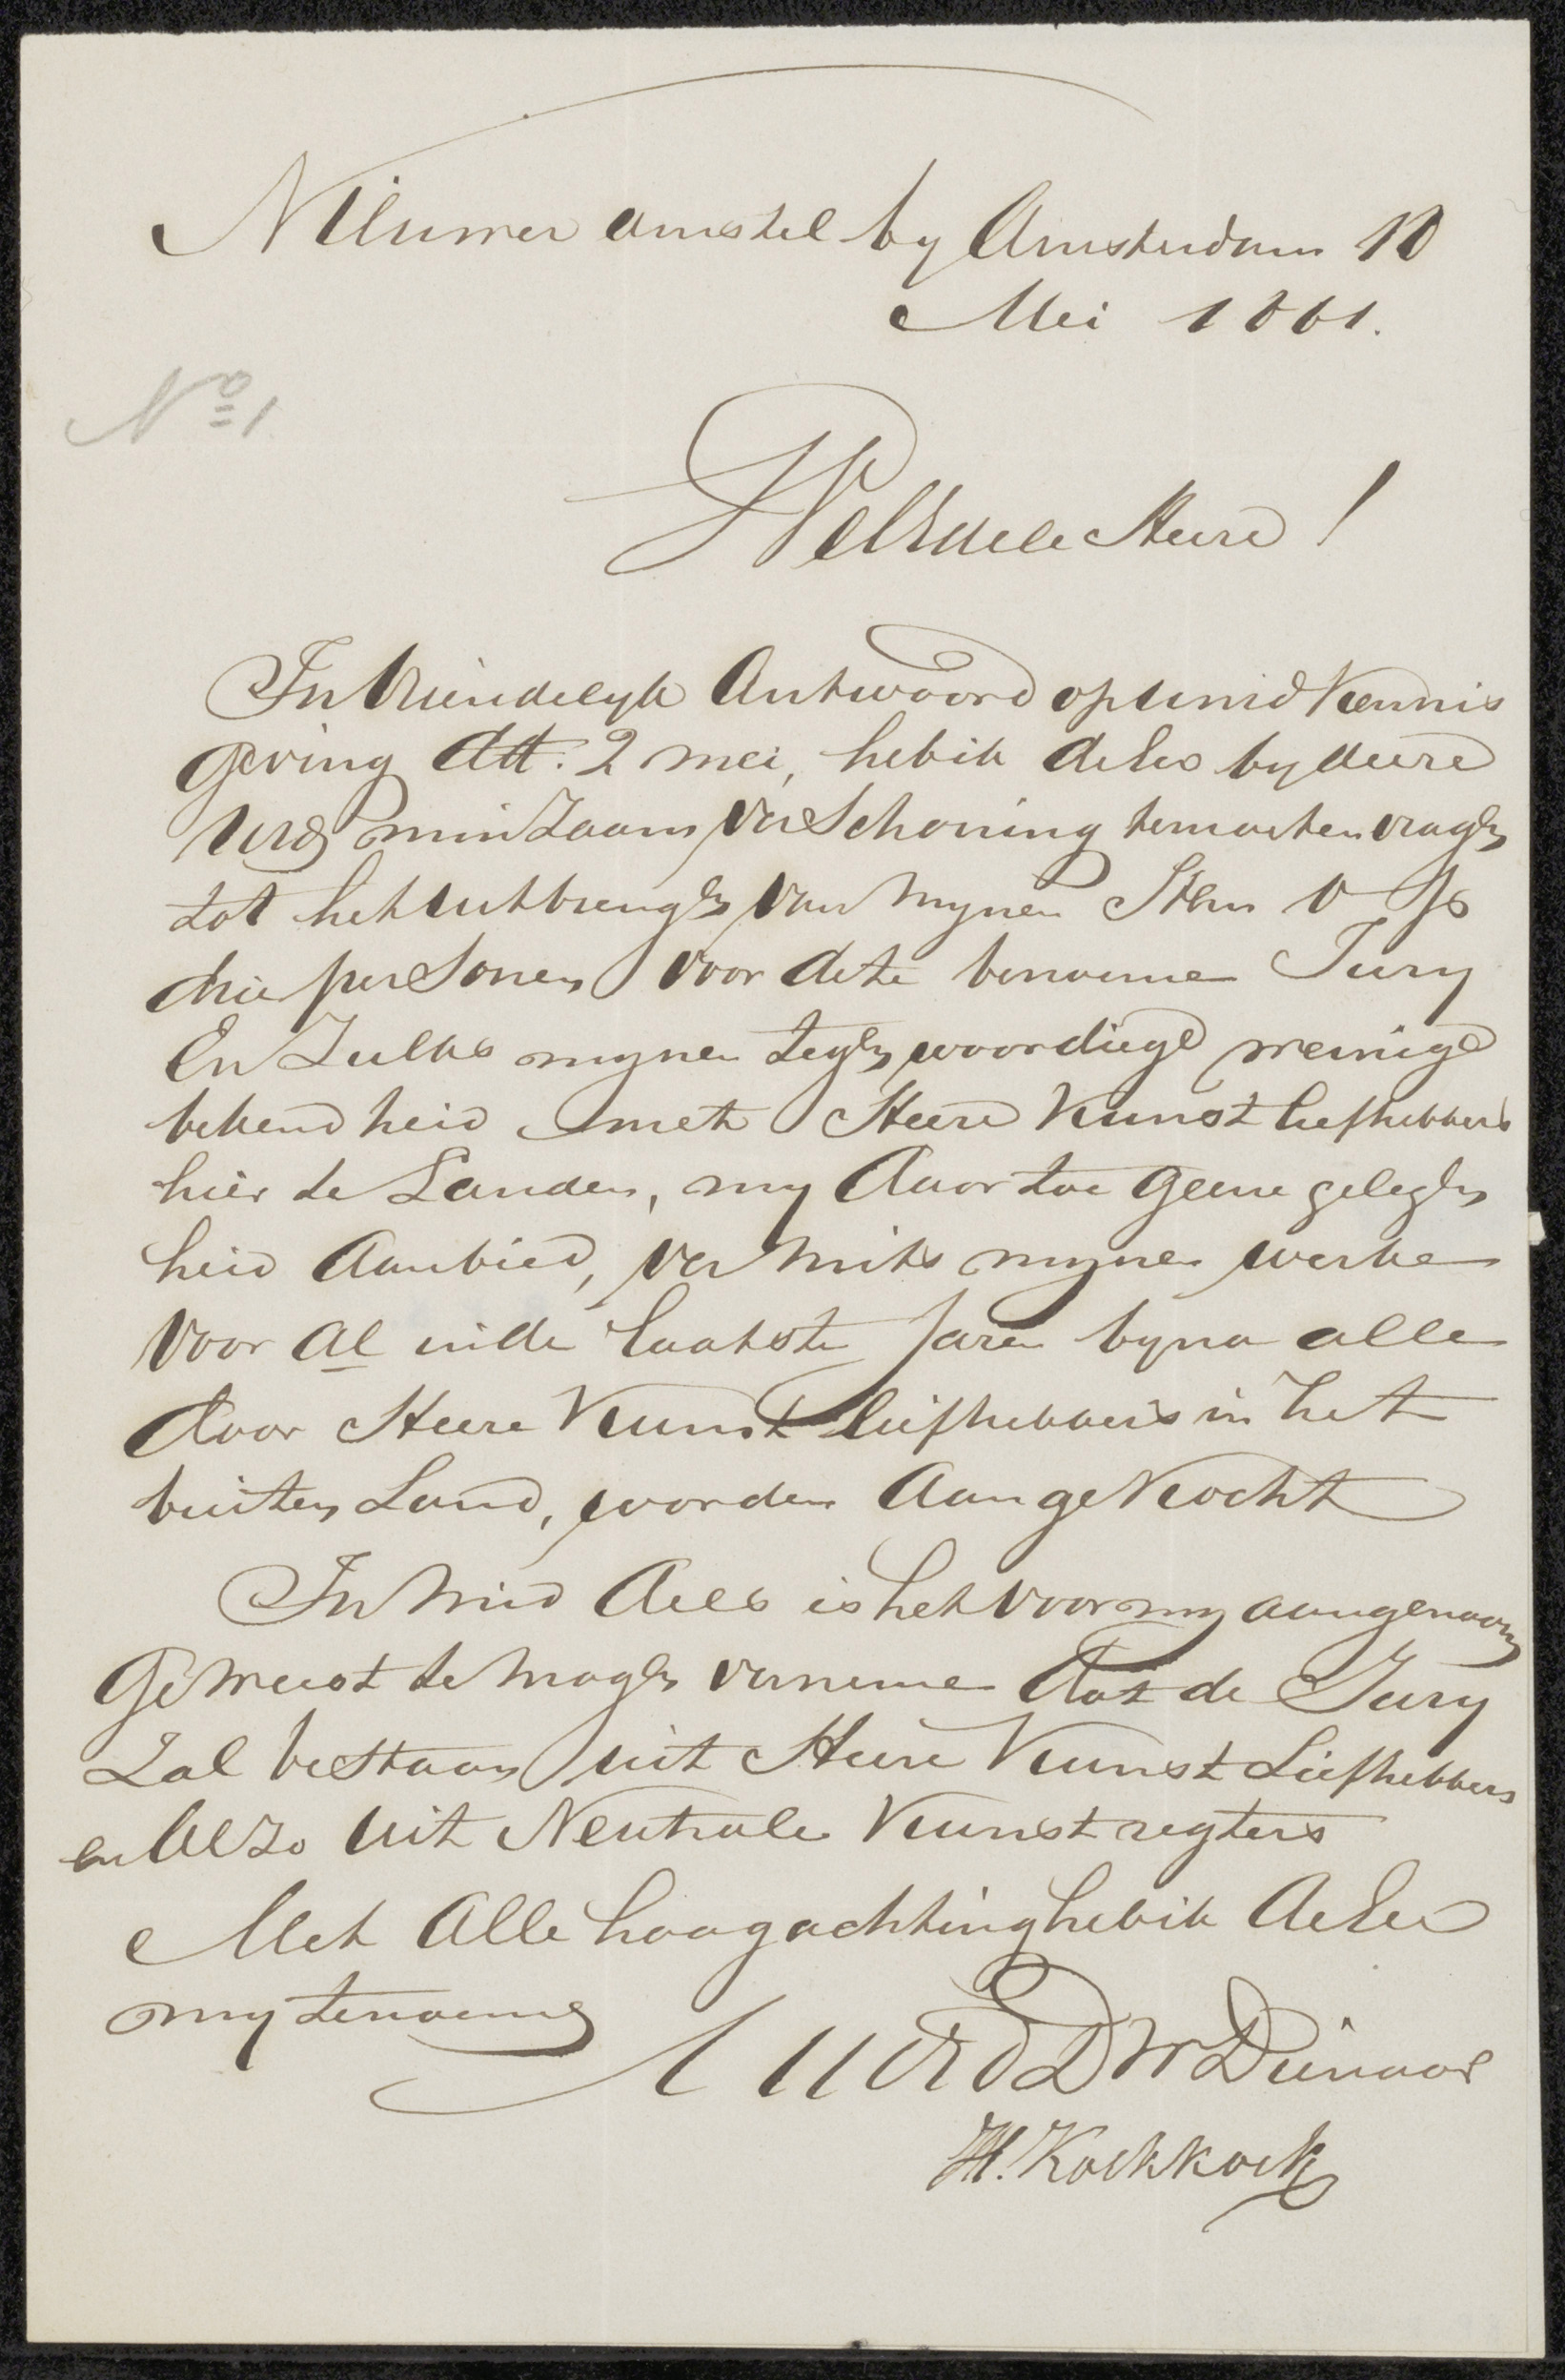 Nieuwer amstel by Amsterdam 10
Mei 1861.
No 1
WelEdele Heere!
In Vriendelyk Antwoord op Kennis
geving dtt. 2 mei, heb ik de Eer by deere
UEd minzaam verSchoning te moeten vragen
tot het uitbrengen van mynen Stem op
drie perSonen voor de te benoeme Jury
En Zulks mynen tegenwoordige weinige
bekend heid met Heere Kunst liefhebbers
hier te Landen, my daar toe geene gelegen
heid Aanbied, vermits myne werke
voor al in de laatste Jare byna alle
door Heere Kunst liefhebbers in het
buiten Land, worden AangeKocht
In Mid dels is het voor my aangenaam
geweest te mogen verneme dat de Jury
Zal beStaan uit Heere Kunst Liefhebbers
en Alzo uit Neutrale Kunst regters
Met Alle hoogachting heb ik de Eer
my te noeme
UEd DW Dienaar
H. Koekkoek